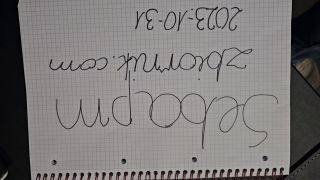 Sebapm
zbiornik.com
2023-10-31